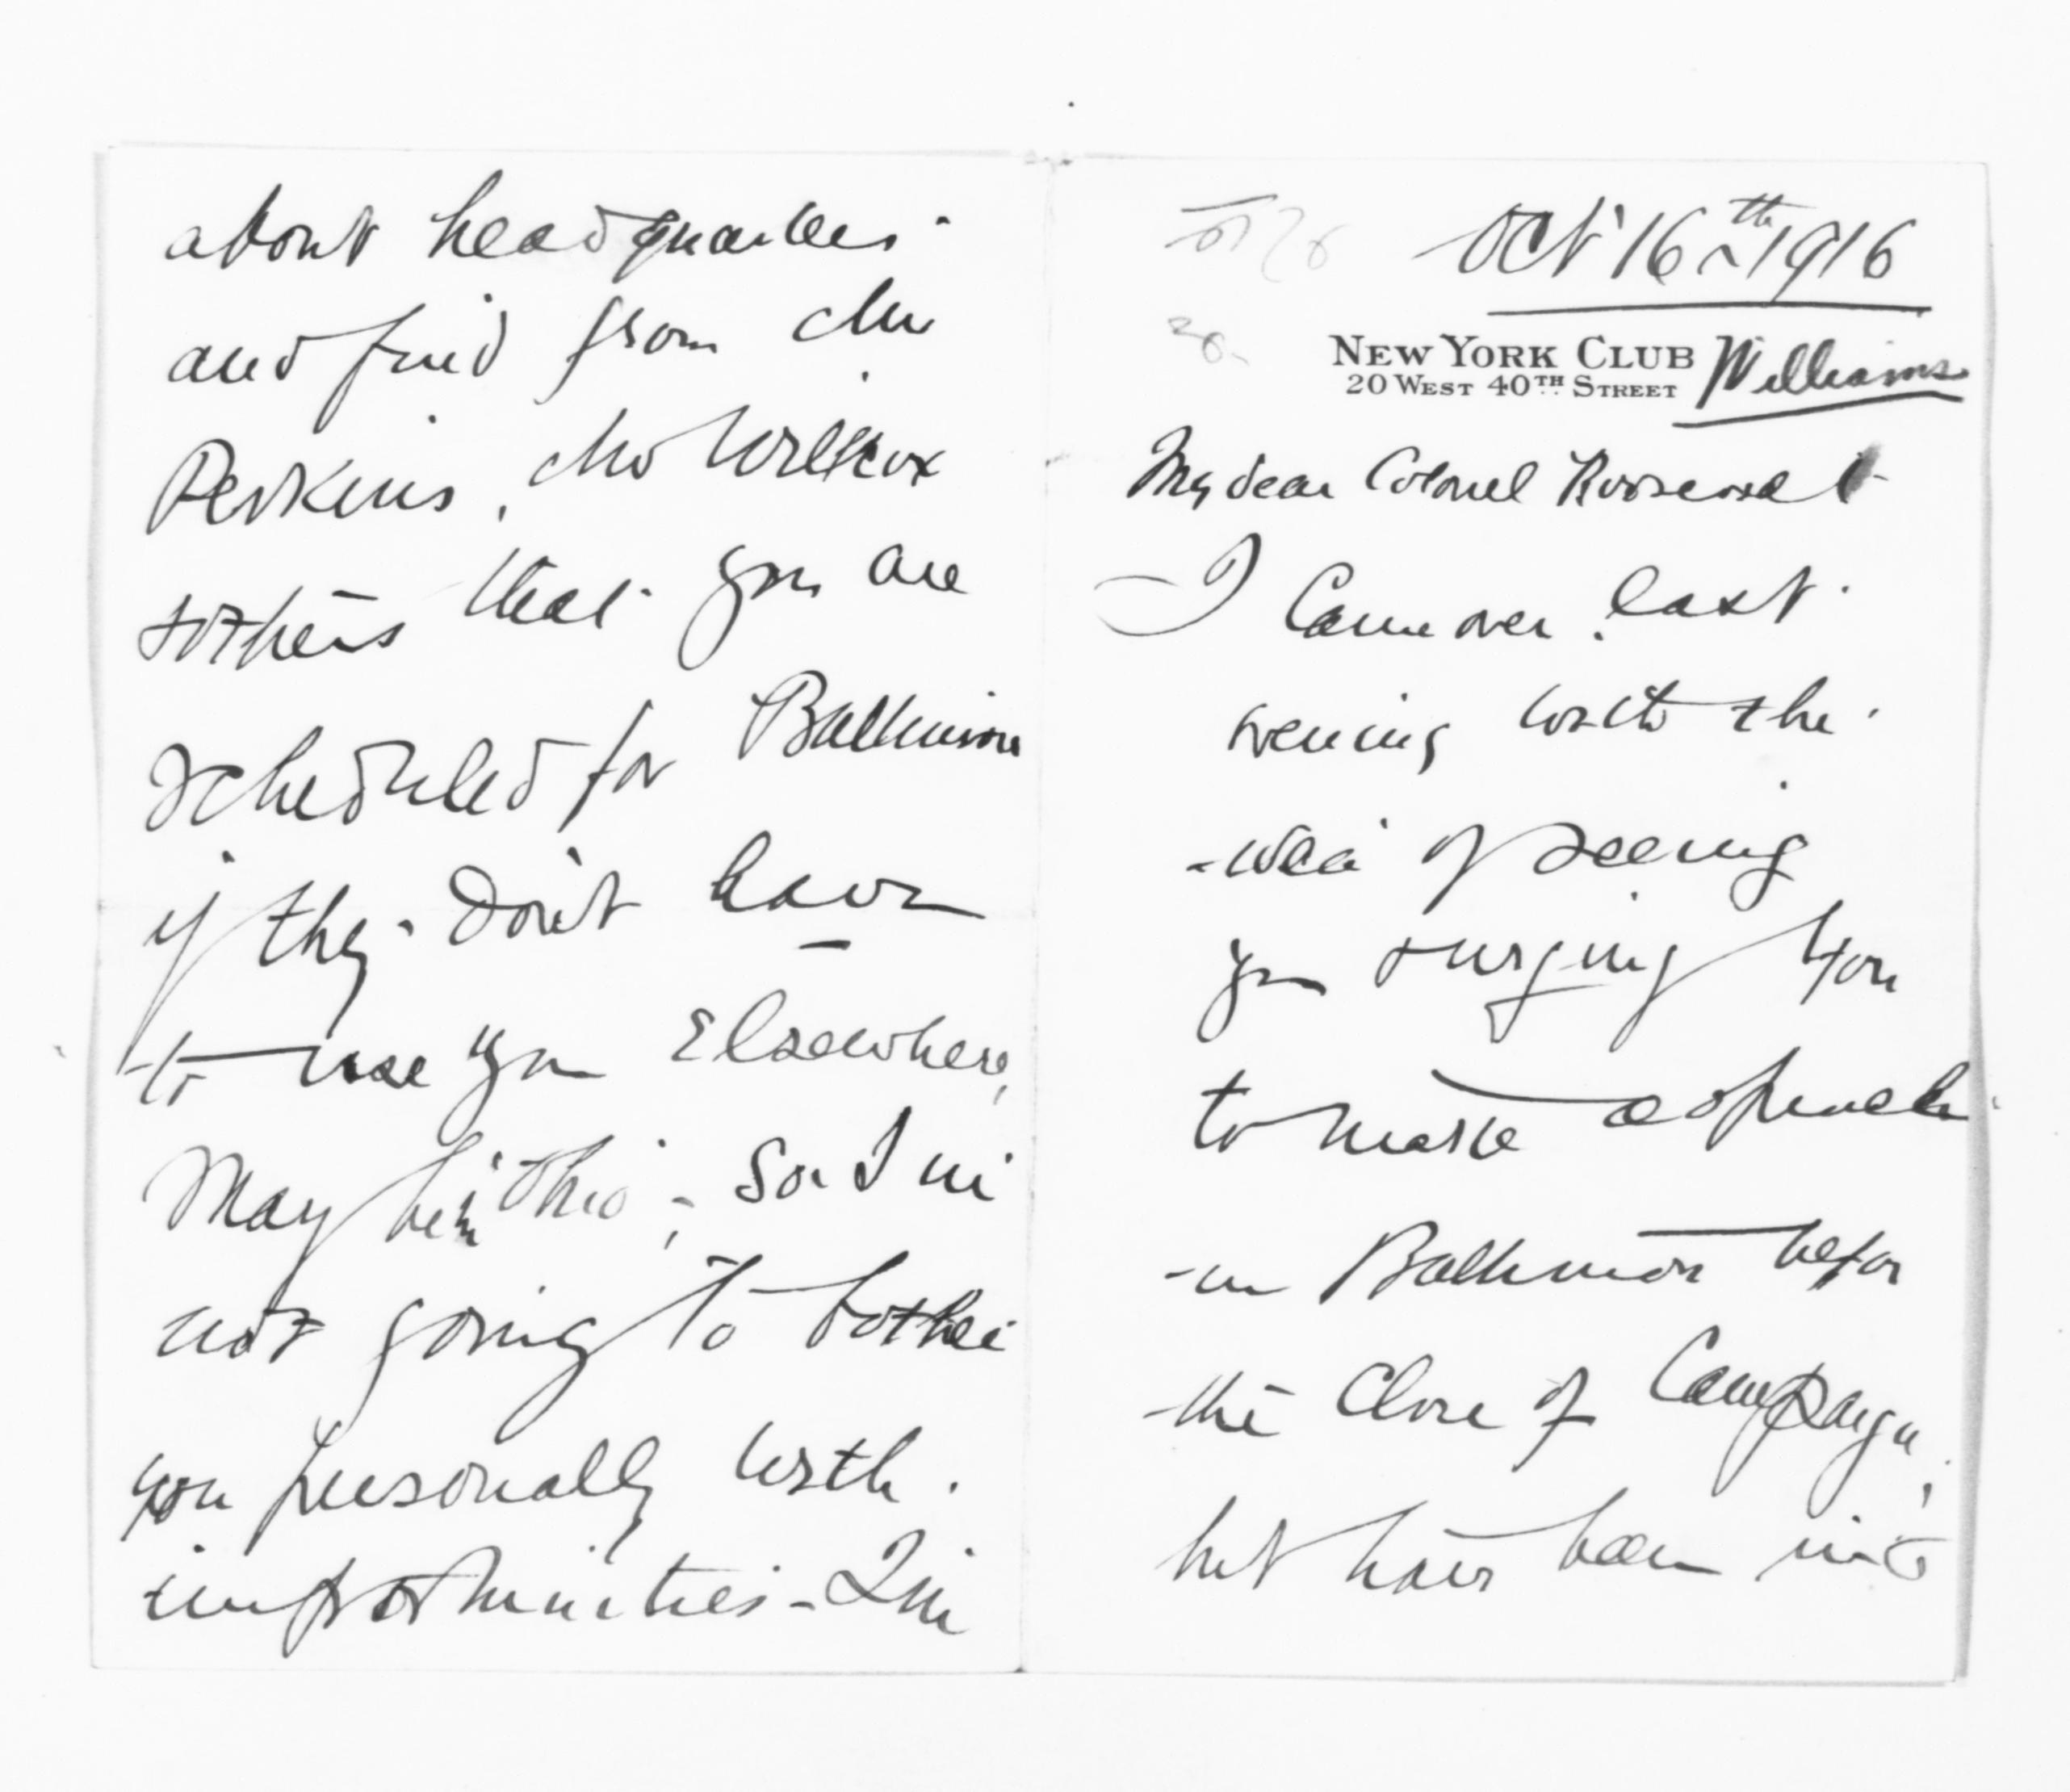 Oct 16th 1916
NEW YORK CLUB Williams
20 WEST 40TH STREET
My dear Colonel Roosevelt
I Came over last
evening with the
idea of seeing
you & urging you
to make a speech
in Baltimore before
the close of Campaign,
but have been into
about headquarters
and find from Mr
Perkins, Mr Willcox
& others that you are
scheduled for Baltimore
if they don't have
to use you Elsewhere,
May be in Ohio; So I'm
not going to bother
you personally with
importunities - I'm